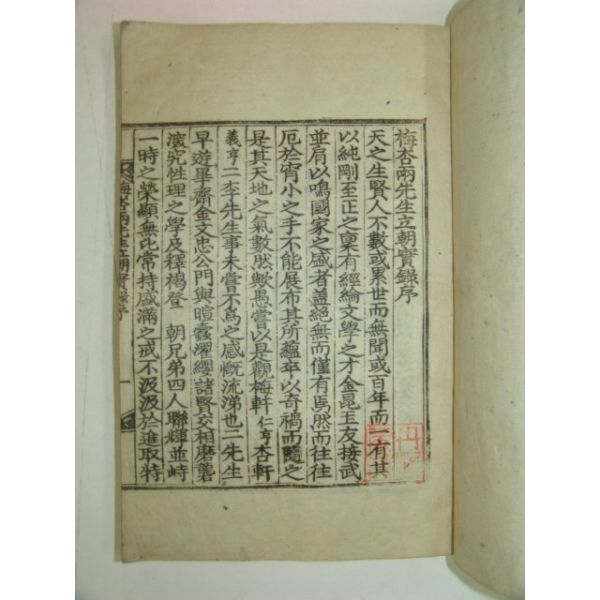 梅杏兩先生立朝實錄序
天之生賢人不數或累世而無聞或百年而一有其
以純剛至正之稟有經綸文學之才金昆玉友接武
並肩以鳴國家之盛者盖絕無而僅有焉然而往往
厄於宵小之手不能展布其所蘊卒以奇禍而隨之
是其天地之氣數然歟愚嘗以是觀梅軒仁亨杏軒
義亨二李先生事未嘗不爲之感慨流涕也二先生
早遊畢齋金文忠公門與暄蠹濯纓諸賢交相磨礱
滚究性理之學及釋褐登 朝兄弟四人聯輝並峙
一時之榮顯無比常持盛滿之戒不汲汲於進取特
梅杏兩先生立朝實錄序 一